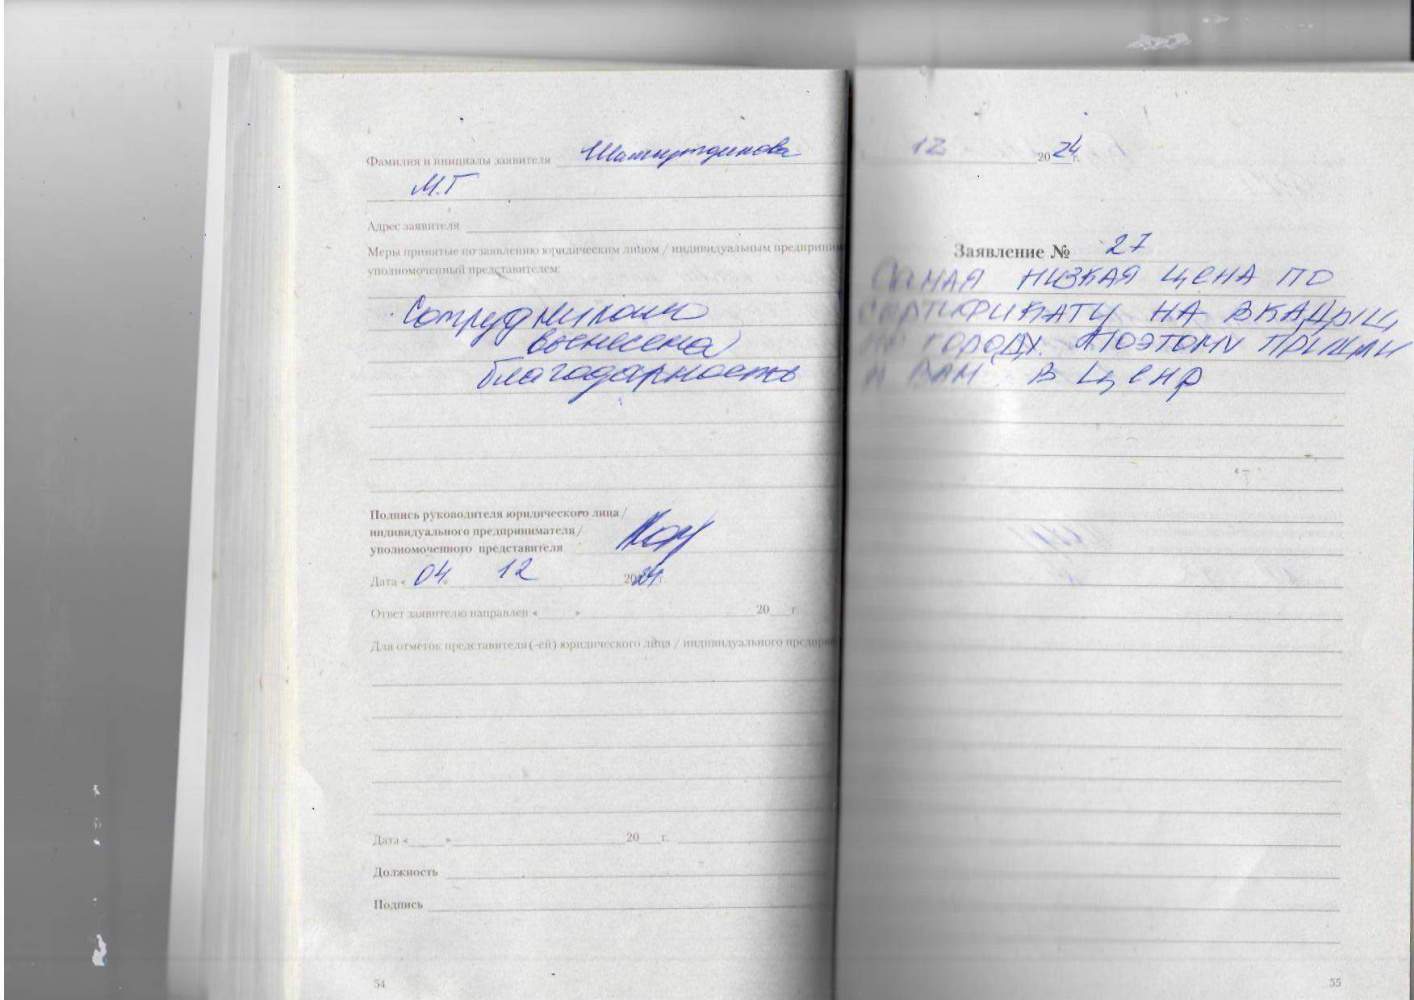 Фамилия и инициалы заявителя
М.Г
Адрес заявителя
Меры принятые по заявлению юридическим лицом / индивидуальным предприним
уполномоченный представителем:
Сотрудниками
вынесена
благодарность
Подпись руководителя юридического лица /
индивидуального предпринимателя /
уполномоченного представителя
Дата « 04 » 12 2024 г.
Ответ заявителю направлен « » 20 г.
Для отметок представителя (-ей) юридического лица / индивидуального предприн
Дата « » 20 г.
Должность
Подпись
54
12 2024 г.
Заявление № 27
САМАЯ НИЗКАЯ ЦЕНА ПО
СЕРТИФИКАТУ НА
ПО ГОРОДУ. ПОЭТОМУ ПРИШЛИ
К ВАМ В
55